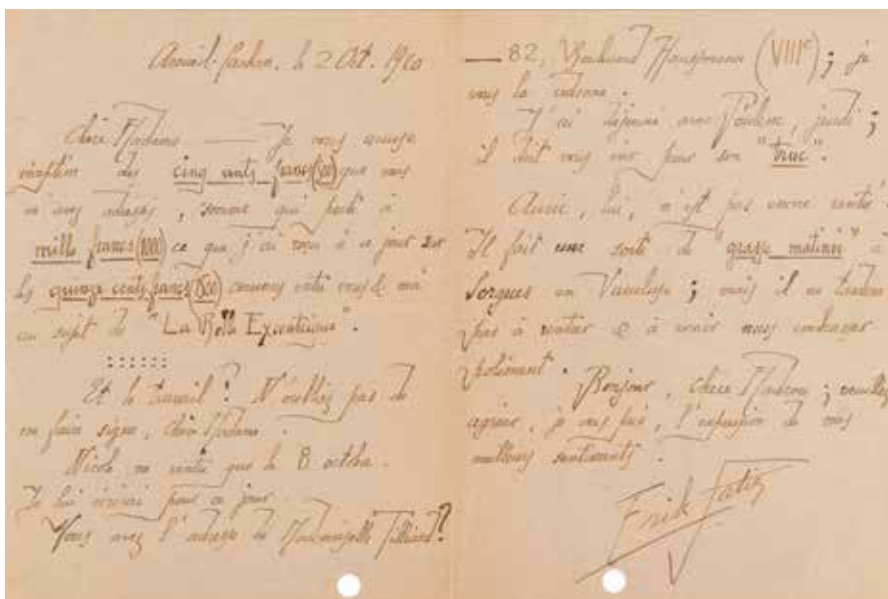 Arcueil-Cachan, le 2 Oct. 1920
Chère Madame — Je vous accuse
réception des cinq cents francs (500) que vous
m'avez adressés, somme qui porte à
mille francs (1000) ce que j'ai reçu à ce jour sur
les quinze cents francs (1500) convenus entre vous & moi
au sujet de "La Belle Excentrique".
::::::
Et le travail? N'oubliez pas de
me faire signe, chère Madame.
Nicole ne rentre que le 8 octobre.
Je lui écrirai pour ce jour.
Vous avez l'adresse de Mademoiselle ?
— 82, Boulevard Haussmann (VIIIe); je
vous la redonne.
J'ai déjeuné avec Poulenc, jeudi;
il doit vous voir pour son "truc".
Auric, lui, n'est pas encore rentré.
Il fait une sorte de "grasse matinée" à
Sorgues en Vaucluse; mais il ne tardera
pas à rentrer & à venir nous embrasser
poliment.
Bonjour, chère Madame; veuillez
agréer, je vous prie, l'expression de mes
meilleurs sentiments.
Erik Satie